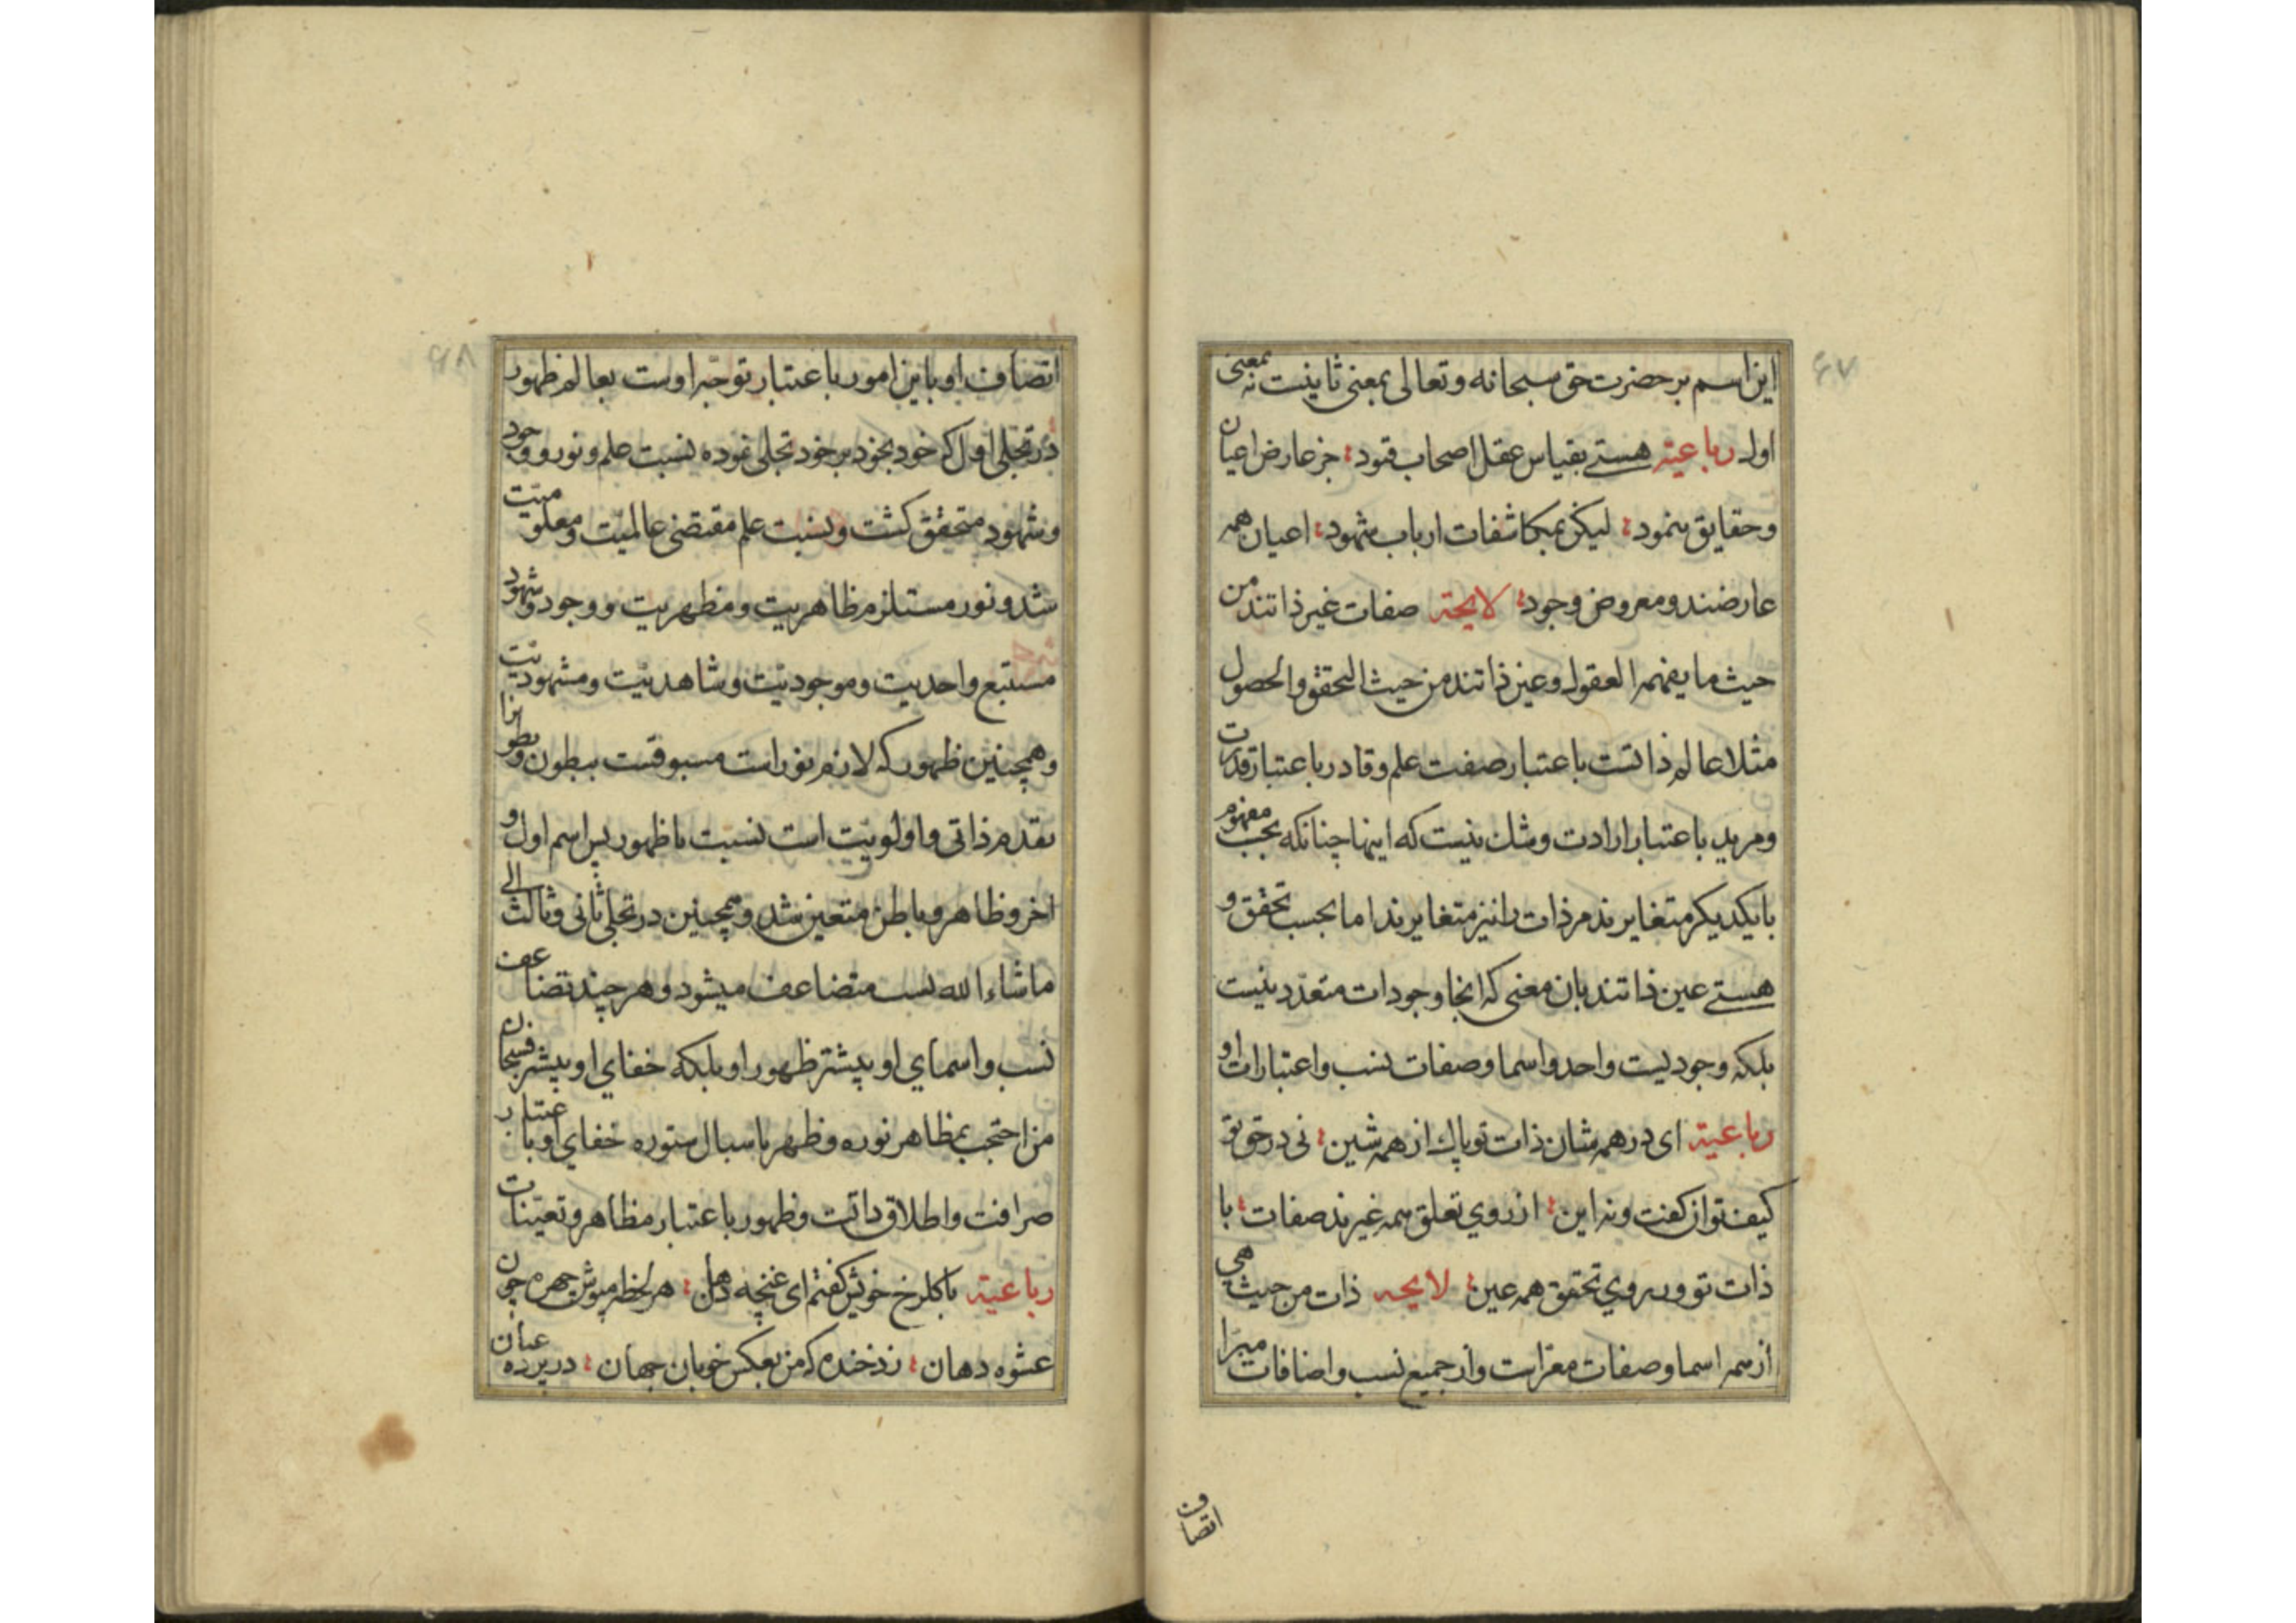 ۶۷
این اسم بر حضرت حق سبحانه و تعالی بمعنی ثانیست نه بمعنی
اول رباعیة هستی بقیاس عقل اصحاب قیود جز عارض اعیان
و حقایق ننمود لیکن بمکاشفات ارباب شهود اعیان همه
عارضند و معروض وجود لایحة صفات غیر ذاتند من
حیث ما یفهمه العقول و عین ذاتند من حیث التحقق و الحصول
مثلا عالم ذاتست باعتبار صفت علم و قادر باعتبار قدرت
و مرید باعتبار ارادت و شک نیست که اینها چنانکه بحسب مفهوم
با یکدیکر متغایرند مر ذات را نیز متغایرند اما بحسب تحقق و
هستی عین ذاتند بان معنی که انجا وجودات متعدد نیست
بلکه وجودیست واحد و اسما و صفات نسب و اعتبارات او
رباعیة ای در همه شان ذات تو پاک از همه شین نی در حق تو
کیف توان کفت و نه این از روی تعلق همه غیرند صفات با
ذات تو و بر روی تحقق همه عین لایحه ذات من حیث هی
از همه اسما و صفات معراست و از جمیع نسب و اضافات مبرا
اتصاف
۶۸
اتصاف او باین امور باعتبار توجه اوست بعالم ظهور
در تجلی اول که خود بخود بر خود تجلی نموده نسبت علم و نور و وجود
و شهود متحقق کشت و نسبت علم مقتضی عالمیت و معلومیت
شد و نور مستلزم ظاهریت و مظهریت و وجود و شهود
مستتبع واحدیت و موجودیت و شاهدیت و مشهودیت
و همچنین ظهور که لازم نورست مسبوقست ببطون و بطون را
تقدم ذاتی و اولویت است نسبت با ظهور پس اسم اول و
اخر و ظاهر و باطن متعین شد و همچنین در تجلی ثانی و ثالث الی
ما شاء الله نسب متضاعف میشود و هر چند تضاعف
نسب و اسمای او بیشتر ظهور او بلکه خفای او بیشتر فسبحان
من احتجب بمظاهر نوره و ظهر باسبال ستوره خفای او باعتبار
صرافت و اطلاق ذاتست و ظهور باعتبار مظاهر و تعینات
رباعیة با کلرخ خویش کفتم ای غنچه دهان هر لحظه مپوش چهره چون
عشوه دهان زد خنده که من بعکس خوبان جهان در پرده عیان